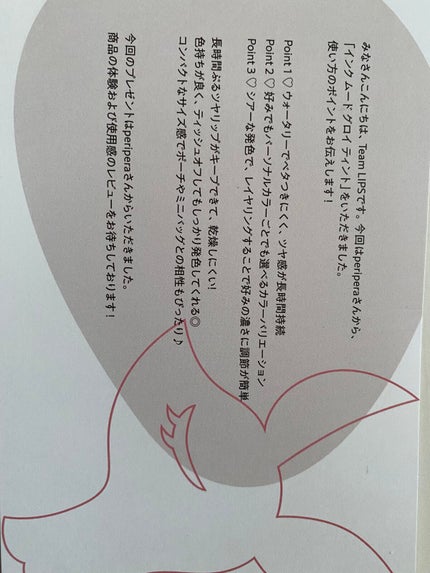 みなさんこんにちは、Team LIPSです。今回はperiperaさんから、
「インク ムード グロイ ティント」をいただきました。
使い方のポイントをお伝えします！
Point 1♡ウォータリーでベタつきにくく、ツヤ感が長時間持続
Point 2♡好みでもパーソナルカラーごとでも選べるカラーバリエーション
Point 3♡シアーな発色で、レイヤリングすることで好みの濃さに調節が簡単
長時間ぷるツヤリップがキープできて、乾燥しにくい！
色持ちが良く、ティッシュオフしてもしっかり発色してくれる◎
コンパクトなサイズ感でポーチやミニバッグとの相性もぴったり♪
今回のプレゼントはperiperaさんからいただきました。
商品の体験および使用感のレビューをお待ちしております！